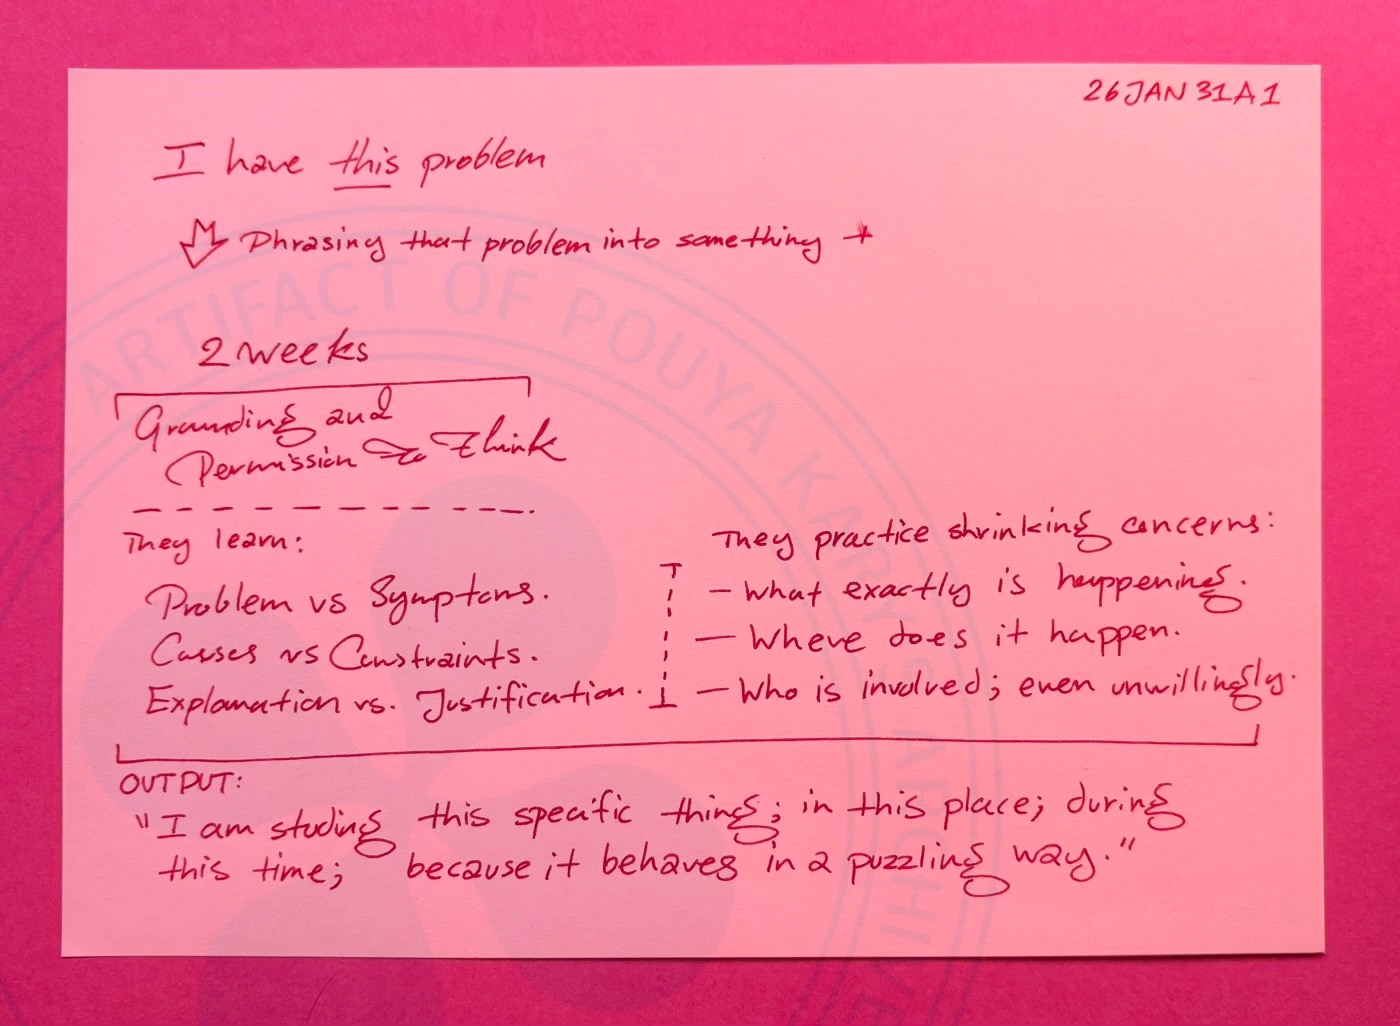 26JAN31A1
I have this problem
Phrasing that problem into something +
2 weeks
Grounding and
Permission to think
They learn:
Problem vs Symptoms.
Causes vs Constraints.
Explanation vs. Justification.
They practice shrinking concerns:
- What exactly is happening.
- Where does it happen.
- Who is involved; even unwillingly.
OUTPUT:
"I am studing this specific thing; in this place; during
this time; because it behaves in a puzzling way."
ARTIFACT OF POUYA KARY'S ARCHIVE